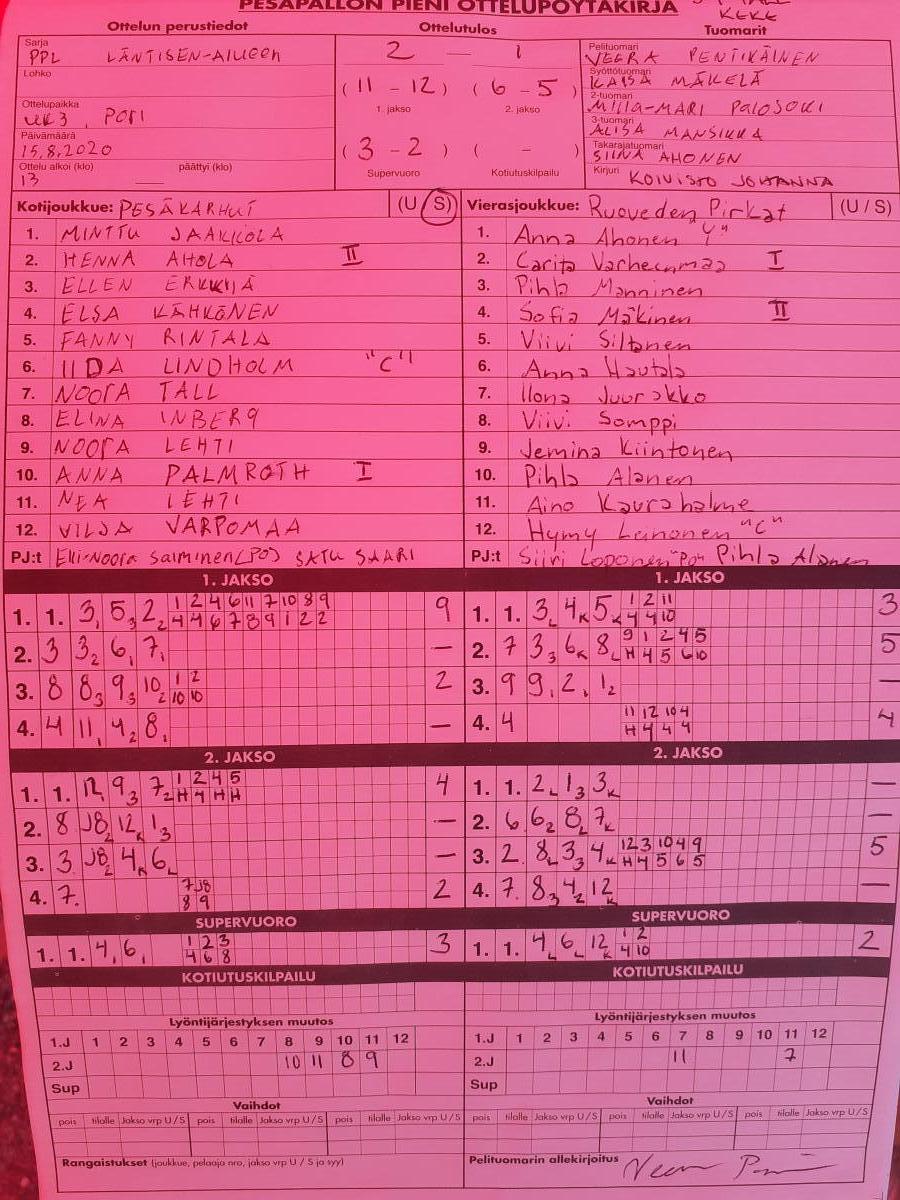 PESÄPALLON PIENI OTTELUPÖYTÄKIRJA
KEKE
Ottelun perustiedot Ottelutulos Tuomarit
Sarja
PPL LÄNTISEN-ALUEEN
Lohko
Ottelupaikka
UK3, PORI
Päivämäärä
15.8.2020
Ottelu alkoi (klo) päättyi (klo)
13 —
2 — 1
(11 - 12) (6 - 5)
1. jakso 2. jakso
(3 - 2) ( - )
Supervuoro Kotiutuskilpailu
Pelituomari
VEERA PENTIKÄINEN
Syöttötuomari
KAISA MÄKELÄ
2-tuomari
MILLA-MARI PALOJOKI
3-tuomari
ALISA MANSIKKA
Takarajatuomari
SIINA AHONEN
Kirjuri KOIVISTO JOHANNA
Kotijoukkue: PESÄKARHUT (U S)
1. MINTTU JAAKKOLA
2. HENNA AHOLA II
3. ELLEN ERKKILÄ
4. ELSA KÄHKÖNEN
5. FANNY RINTALA
6. IIDA LINDHOLM "C"
7. NOORA TALL
8. ELINA INBERG
9. NOORA LEHTI
10. ANNA PALMROTH I
11. NEA LEHTI
12. VILJA VARPOMAA
PJ:t Elli-Noora Salminen (PO) SATU SAARI
Vierasjoukkue: Ruoveden Pirkat (U / S)
1. Anna Ahonen "Y"
2. Carita Varheenmaa I
3. Pihla Manninen
4. Sofia Mäkinen II
5. Viivi Siltanen
6. Anna Hautala
7. Ilona Juurakko
8. Viivi Somppi
9. Jemina Kiintonen
10. Pihla Alanen
11. Aino Kaurahalme
12. Hymy Leinonen "C"
PJ:t Siiri Loponen "PO" Pihla Alanen
1. JAKSO
1. 1. 3, 5 3 2 2 1 2 4 6 11 7 10 8 9 9
4 4 6 7 8 9 1 2 2
2. 3 3 2 6, 7, —
3. 8 8 3 9 3 10 2 1 2 2
10 10
4. 4 11, 4 2 8, —
1. JAKSO
1. 1. 3 L 4 K 5 K 1 2 11 3
4 4 10
2. 7 3 3 6 K 8 L 9 1 2 4 5 5
H 4 5 6 10
3. 9 9, 2, 1 2 —
4. 4 11 12 10 4 4
H 4 4 4
2. JAKSO
1. 1. 12, 9 3 7 2 1 2 4 5 4
H 4 H H
2. 8 J8 2 12 K 1 3 —
3. 3 J8 2 4 K 6 L —
4. 7. 7 J8 2
8 9
2. JAKSO
1. 1. 2 L 1 3 3 K —
2. 6 6 2 8 2 7 K —
3. 2. 8 L 3 3 4 K 12 3 10 4 9 5
H 4 5 6 5
4. 7. 8 3 4 2 12 K —
SUPERVUORO
1. 1. 4, 6, 1 2 3 3
4 6 8
SUPERVUORO
1. 1. 4 L 6 L 12 K 1 2 2
4 10
KOTIUTUSKILPAILU KOTIUTUSKILPAILU
Lyöntijärjestyksen muutos
1.J 1 2 3 4 5 6 7 8 9 10 11 12
2.J 10 11 8 9
Sup
Lyöntijärjestyksen muutos
1.J 1 2 3 4 5 6 7 8 9 10 11 12
2.J 11 7
Sup
Vaihdot Vaihdot
pois tilalle Jakso vrp U / S pois tilalle Jakso vrp U / S pois tilalle Jakso vrp U / S
pois tilalle Jakso vrp U / S pois tilalle Jakso vrp U / S pois tilalle Jakso vrp U / S
Rangaistukset (joukkue, pelaaja nro, jakso vrp U / S ja syy)
Pelituomarin allekirjoitus